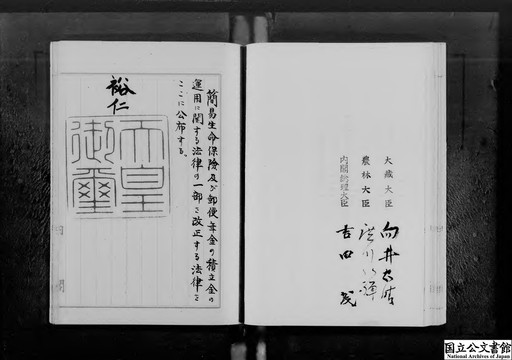 簡易生命保険及び郵便年金の積立金の
運用に関する法律の一部を改正する法律を
ここに公布する。
裕仁
天皇
御璽
内閣
大蔵大臣 向井忠晴
農林大臣 廣川弘禪
内閣総理大臣 吉田茂
国立公文書館
National Archives of Japan